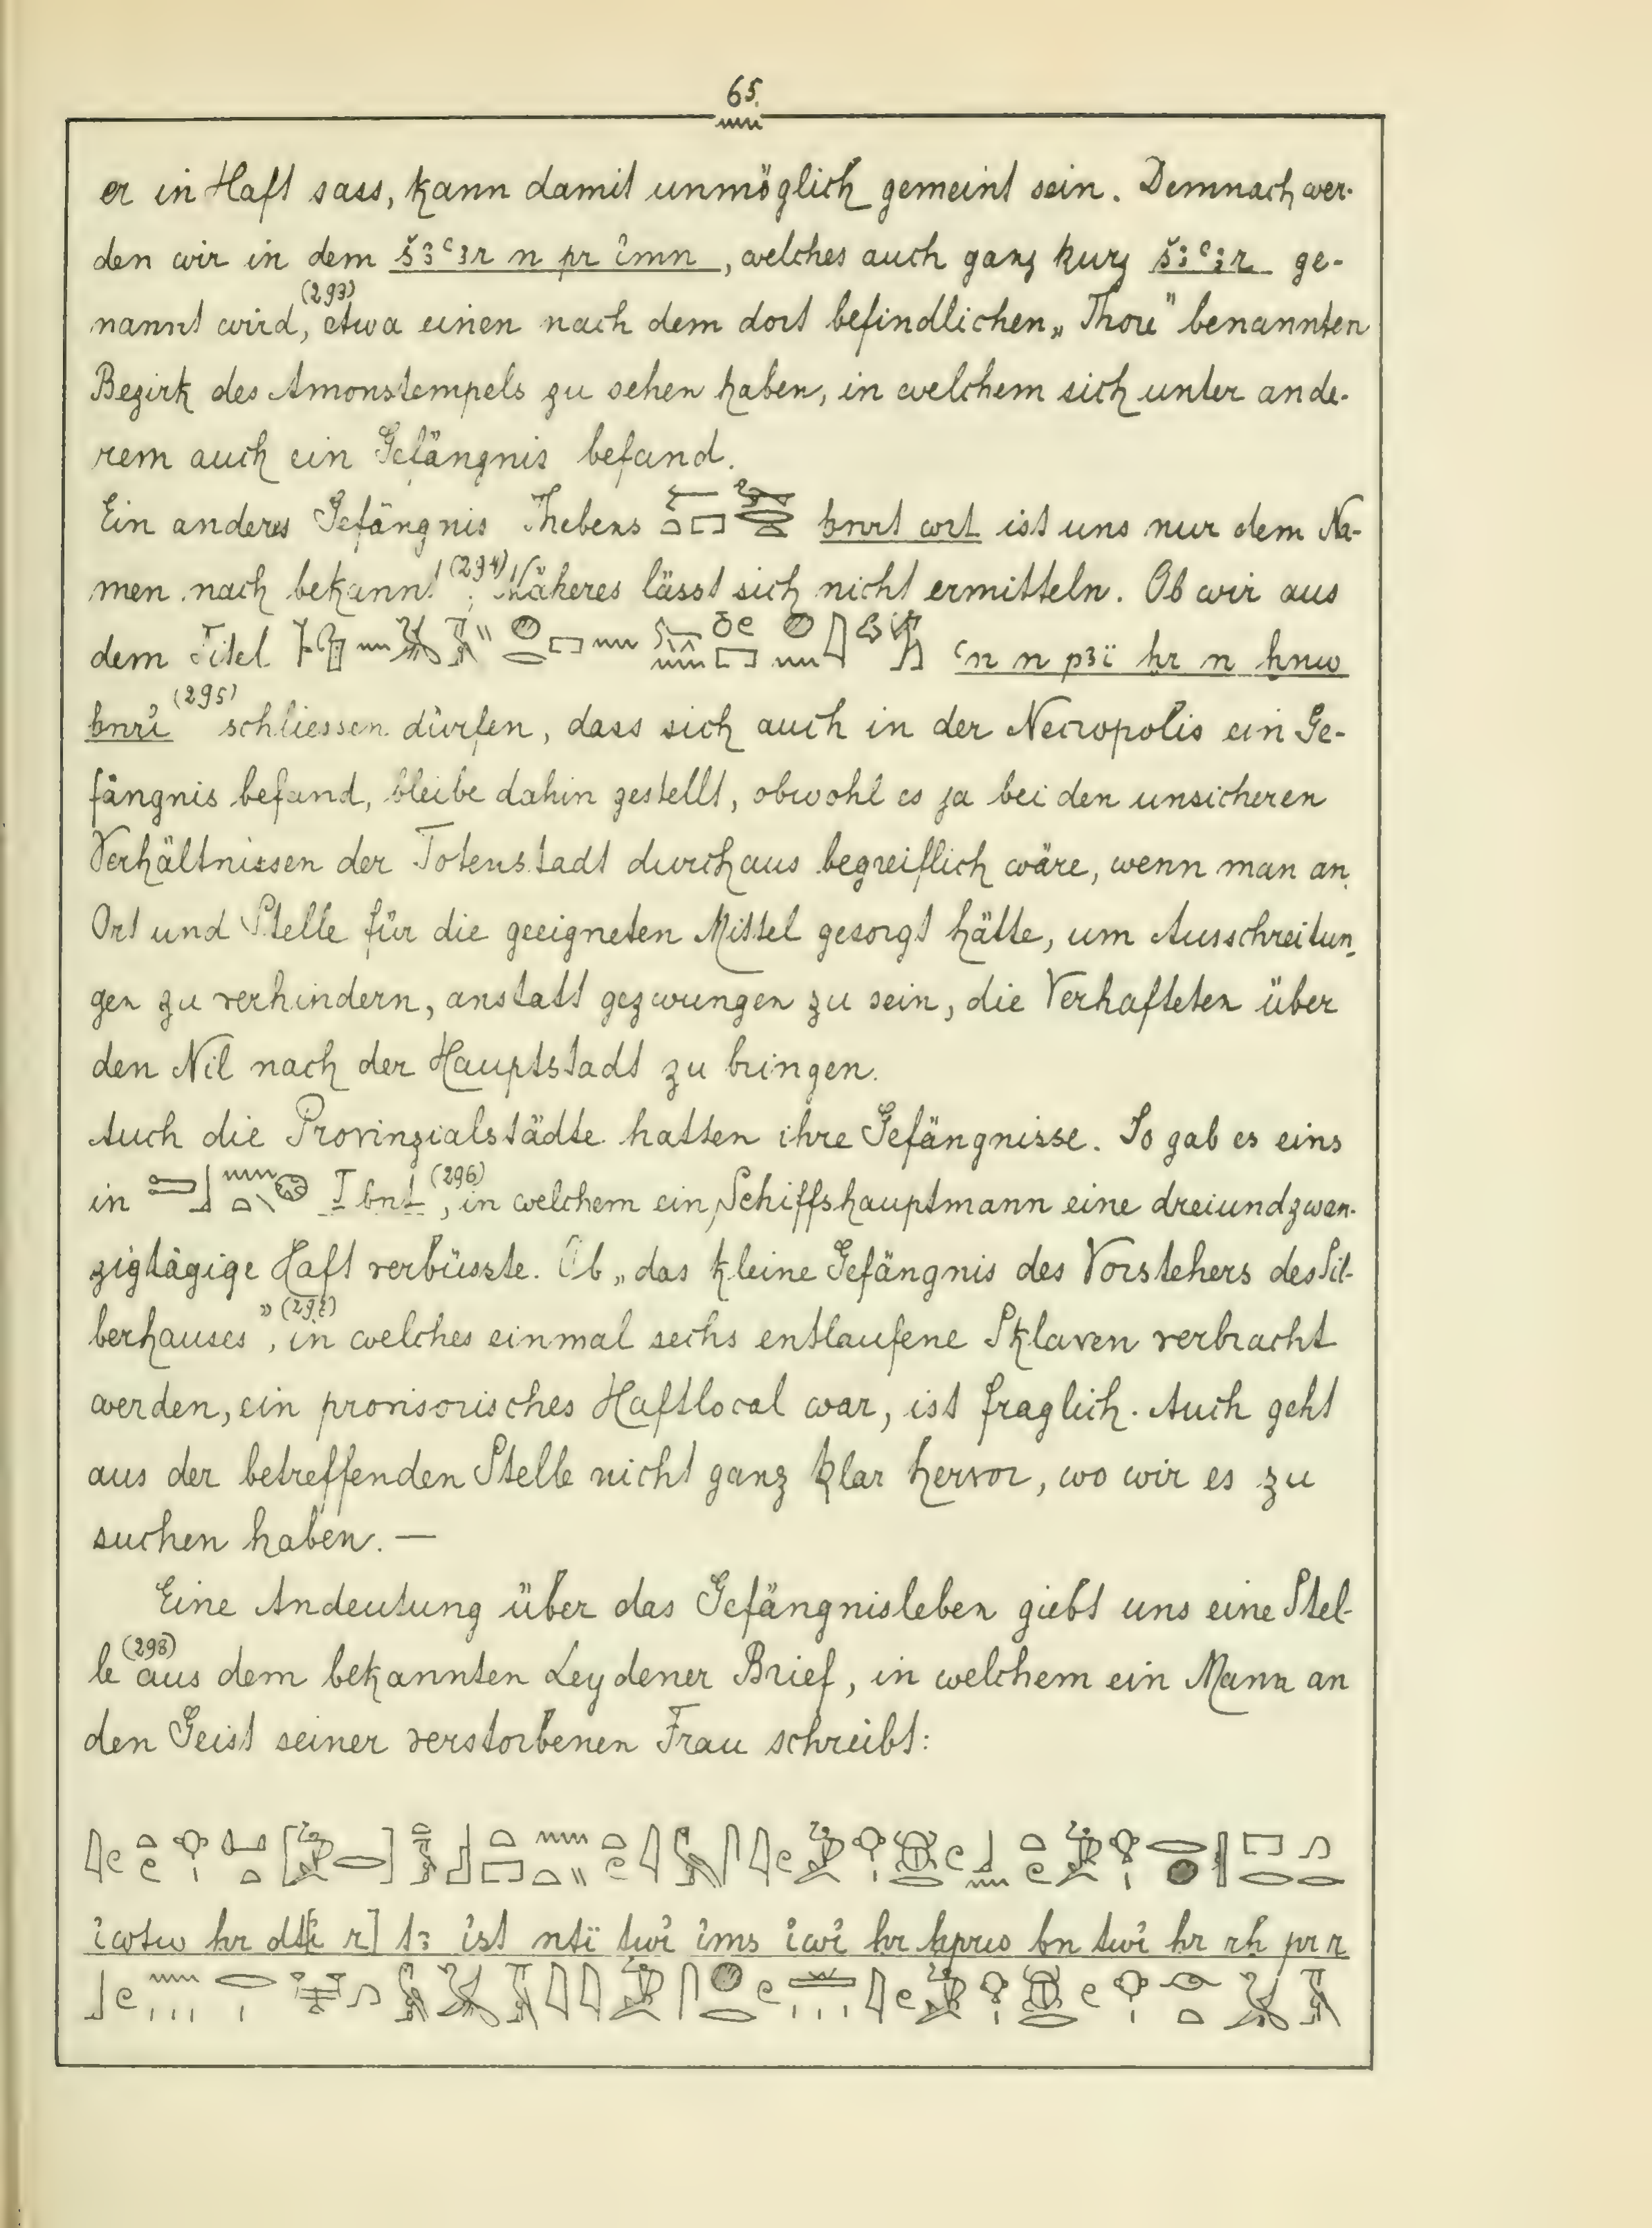 65.
er in Haft sass, kann damit unmöglich gemeint sein. Demnach wer-
den wir in dem š3ꜥ3r n pr imn, welches auch ganz kurz š3ꜥ3r ge-
nannt wird,(293) etwa einen nach dem dort befindlichen „Thore" benannten
Bezirk des Amonstempels zu sehen haben, in welchem sich unter ande-
rem auch ein Gefängnis befand.
Ein anderes Gefängnis Thebens ist uns nur dem Na-
men nach bekannt(294); Näheres lässt sich nicht ermitteln. Ob wir aus
dem Titel ꜥn n p3ï hr n hnw
hnri(295) schliessen dürfen, dass sich auch in der Necropolis ein Ge-
fängnis befand, bleibe dahin gestellt, obwohl es ja bei den unsicheren
Verhältnissen der Totenstadt durchaus begreiflich wäre, wenn man an
Ort und Stelle für die geeigneten Mittel gesorgt hätte, um Ausschreitun-
gen zu verhindern, anstatt gezwungen zu sein, die Verhafteten über
den Nil nach der Hauptstadt zu bringen.
Auch die Provinzialstädte hatten ihre Gefängnisse. So gab es eins
in Ṯbnt(296), in welchem ein Schiffshauptmann eine dreiundzwan-
zigtägige Haft verbüsste. Ob „das kleine Gefängnis des Vorstehers des Sil-
berhauses", in welches einmal sechs entlaufene Sklaven verbracht
werden, ein provisorisches Haftlocal war, ist fraglich. Auch geht
aus der betreffenden Stelle nicht ganz klar hervor, wo wir es zu
suchen haben. —
Eine Andeutung über das Gefängnisleben giebt uns eine Stel-
le(298) aus dem bekannten Leydener Brief, in welchem ein Mann an
den Geist seiner verstorbenen Frau schreibt:
iwtw hr dt[i r] t3 ist ntï twi ims iwi hr hprw bn twi hr rh pr r